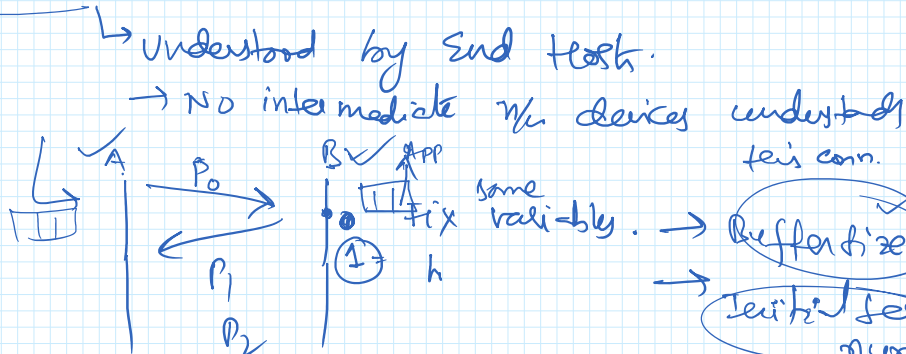 understood by End Host.
→ No intermediate n/w devices understands
this conn.
A B App
P0
Fix some variables. → Buffersize
1 h
P1 → Initial se
P2 num